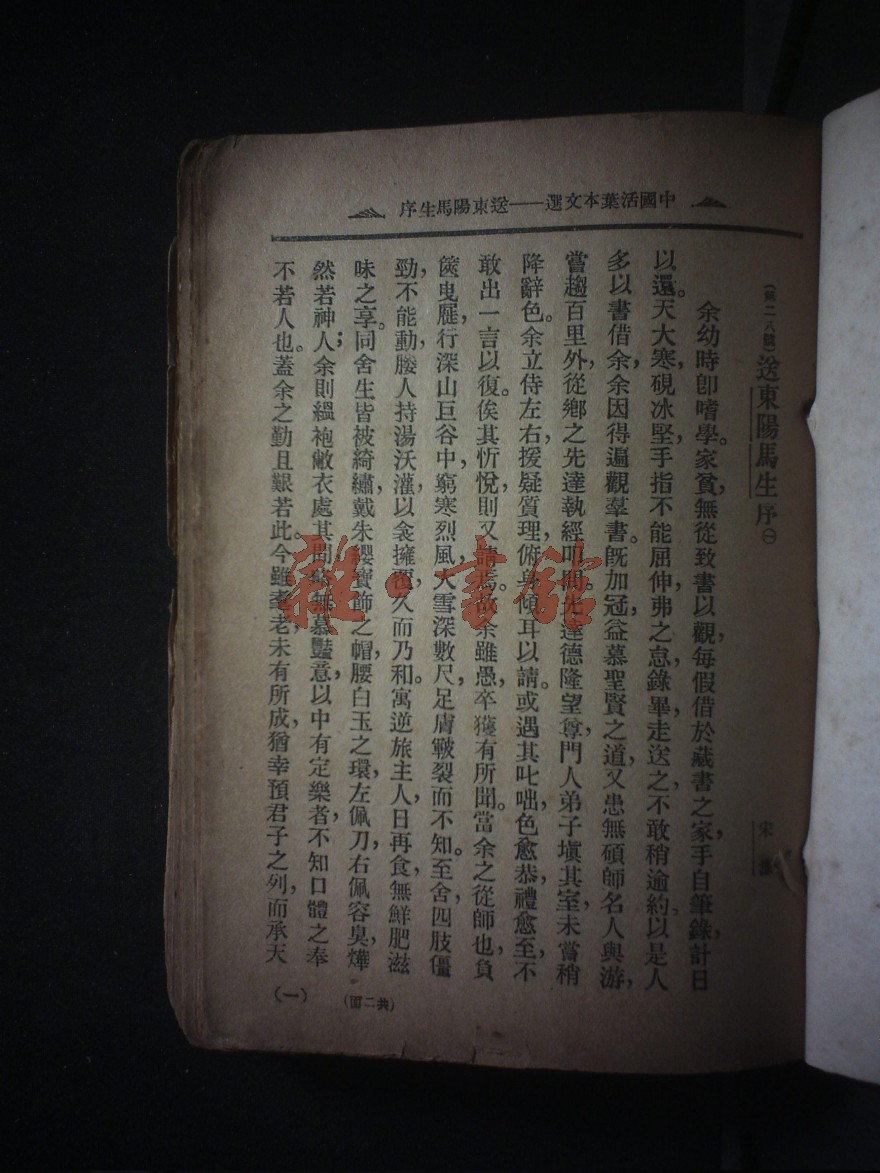 中國活葉本文選——送東陽馬生序
(第二八號)送東陽馬生序㊀
宋濂
余幼時即嗜學。家貧,無從致書以觀,每假借於藏書之家,手自筆錄,計日
以還。天大寒,硯冰堅,手指不能屈伸,弗之怠。錄畢,走送之,不敢稍逾約。以是人
多以書借余,余因得遍觀羣書。既加冠,益慕聖賢之道,又患無碩師名人與游,
嘗趨百里外,從鄉之先達執經叩問。先達德隆望尊,門人弟子塡其室,未嘗稍
降辭色。余立侍左右,援疑質理,俯身傾耳以請。或遇其叱咄,色愈恭,禮愈至,不
敢出一言以復。俟其忻悅,則又請焉。故余雖愚,卒獲有所聞。當余之從師也,負
篋曳屣,行深山巨谷中,窮寒烈風,大雪深數尺,足膚皸裂而不知。至舍,四肢僵
勁不能動,媵人持湯沃灌,以衾擁覆,久而乃和。寓逆旅主人,日再食,無鮮肥滋
味之享。同舍生皆被綺繡,戴朱纓寶飾之帽,腰白玉之環,左佩刀,右佩容臭,燁
然若神人;余則縕袍敝衣處其間,無慕豔意,以中有定樂者,不知口體之奉
不若人也。蓋余之勤且艱若此。今雖耄老,未有所成,猶幸預君子之列,而承天
(共二面)
(一)
雜·書館